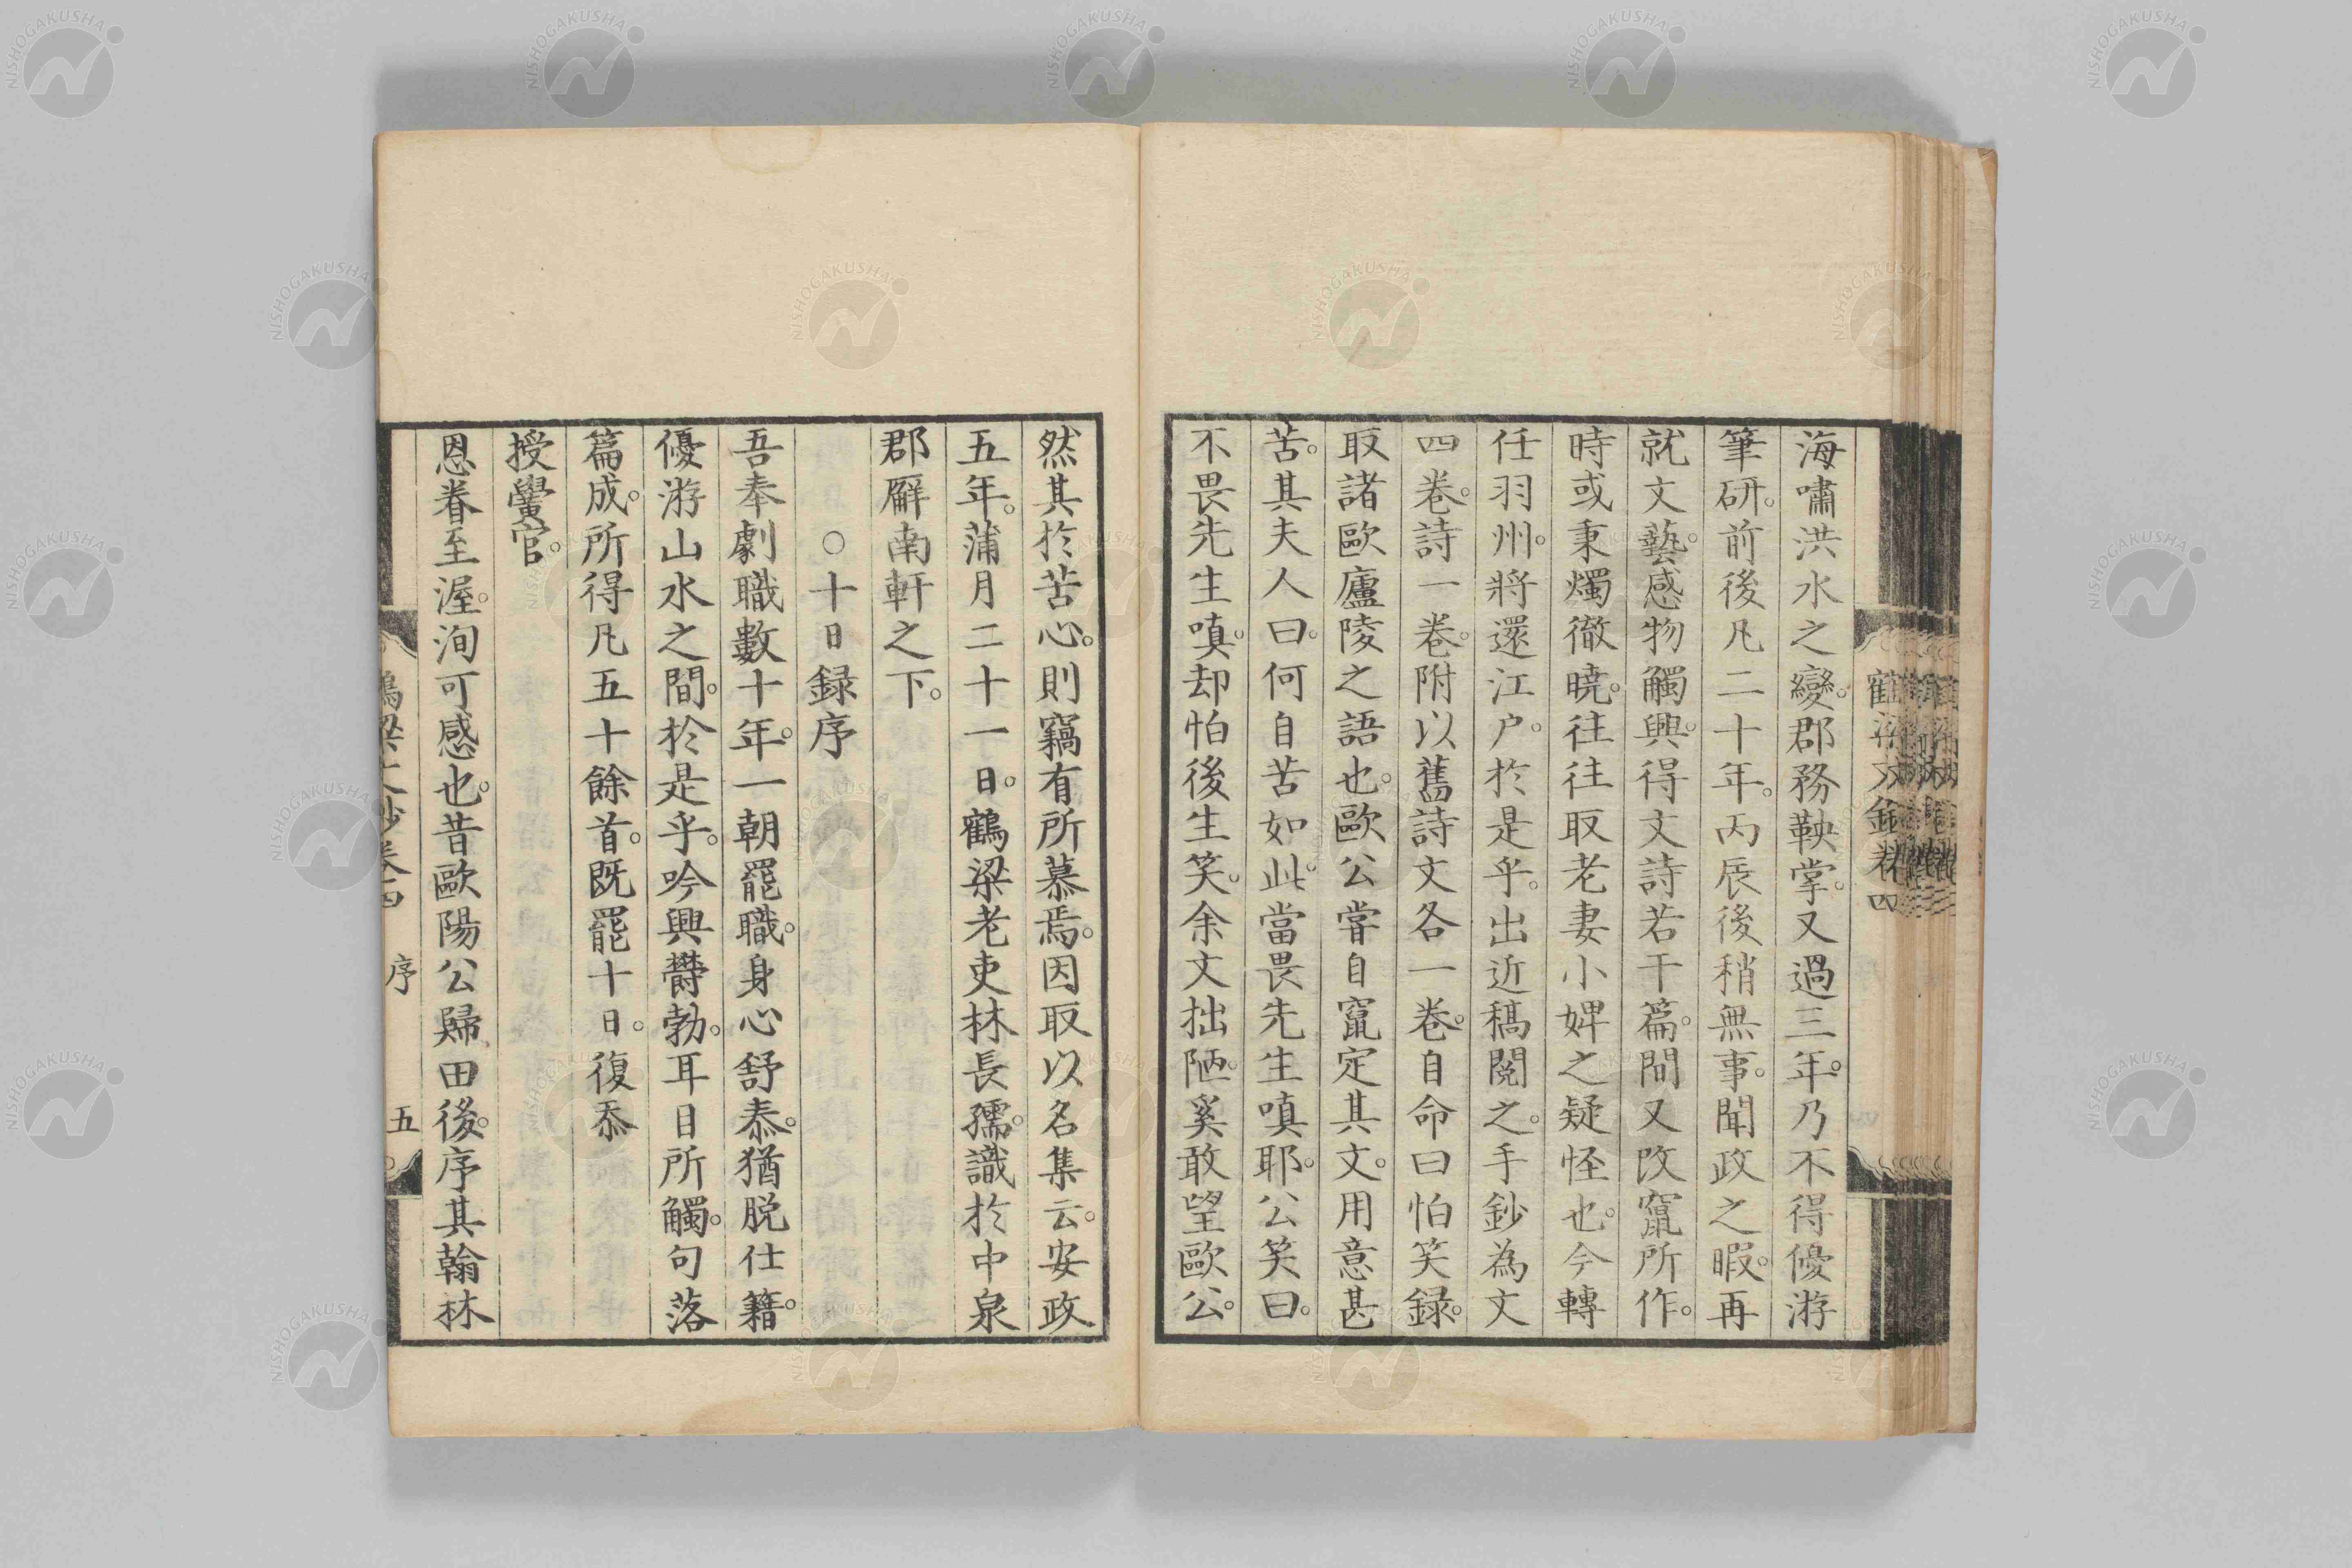 海嘯洪水之變。郡務鞅掌。又過三年。乃不得優游
筆研。前後凡二十年。丙辰後稍無事。聞政之暇。再
就文藝。感物觸興。得文詩若干篇。間又改竄所作。
時或秉燭徹曉。往往取老妻小婢之疑怪也。今轉
任羽州。將還江戶。於是乎。出近稿閱之。手鈔為文
四卷。詩一卷。附以舊詩文各一卷。自命曰怕笑録。
取諸歐廬陵之語也。歐公嘗自竄定其文。用意甚
苦。其夫人曰。何自苦如此。當畏先生嗔耶。公笑曰。
不畏先生嗔。却怕後生笑。余文拙陋。奚敢望歐公。
然其於苦心。則竊有所慕焉。因取以名集云。安政
五年。蒲月二十一日。鶴梁老吏林長孺。識於中泉
郡廨南軒之下。
○十日録序
吾奉劇職數十年。一朝罷職。身心舒泰。猶脱仕籍。
優游山水之間。於是乎。吟興欝勃。耳目所觸。句落
篇成。所得凡五十餘首。既罷十日。復忝
授黌官。
恩眷至渥。洵可感也。昔歐陽公歸田後。序其翰林
鶴梁文鈔卷四 序 五
NISHOGAKUSHA